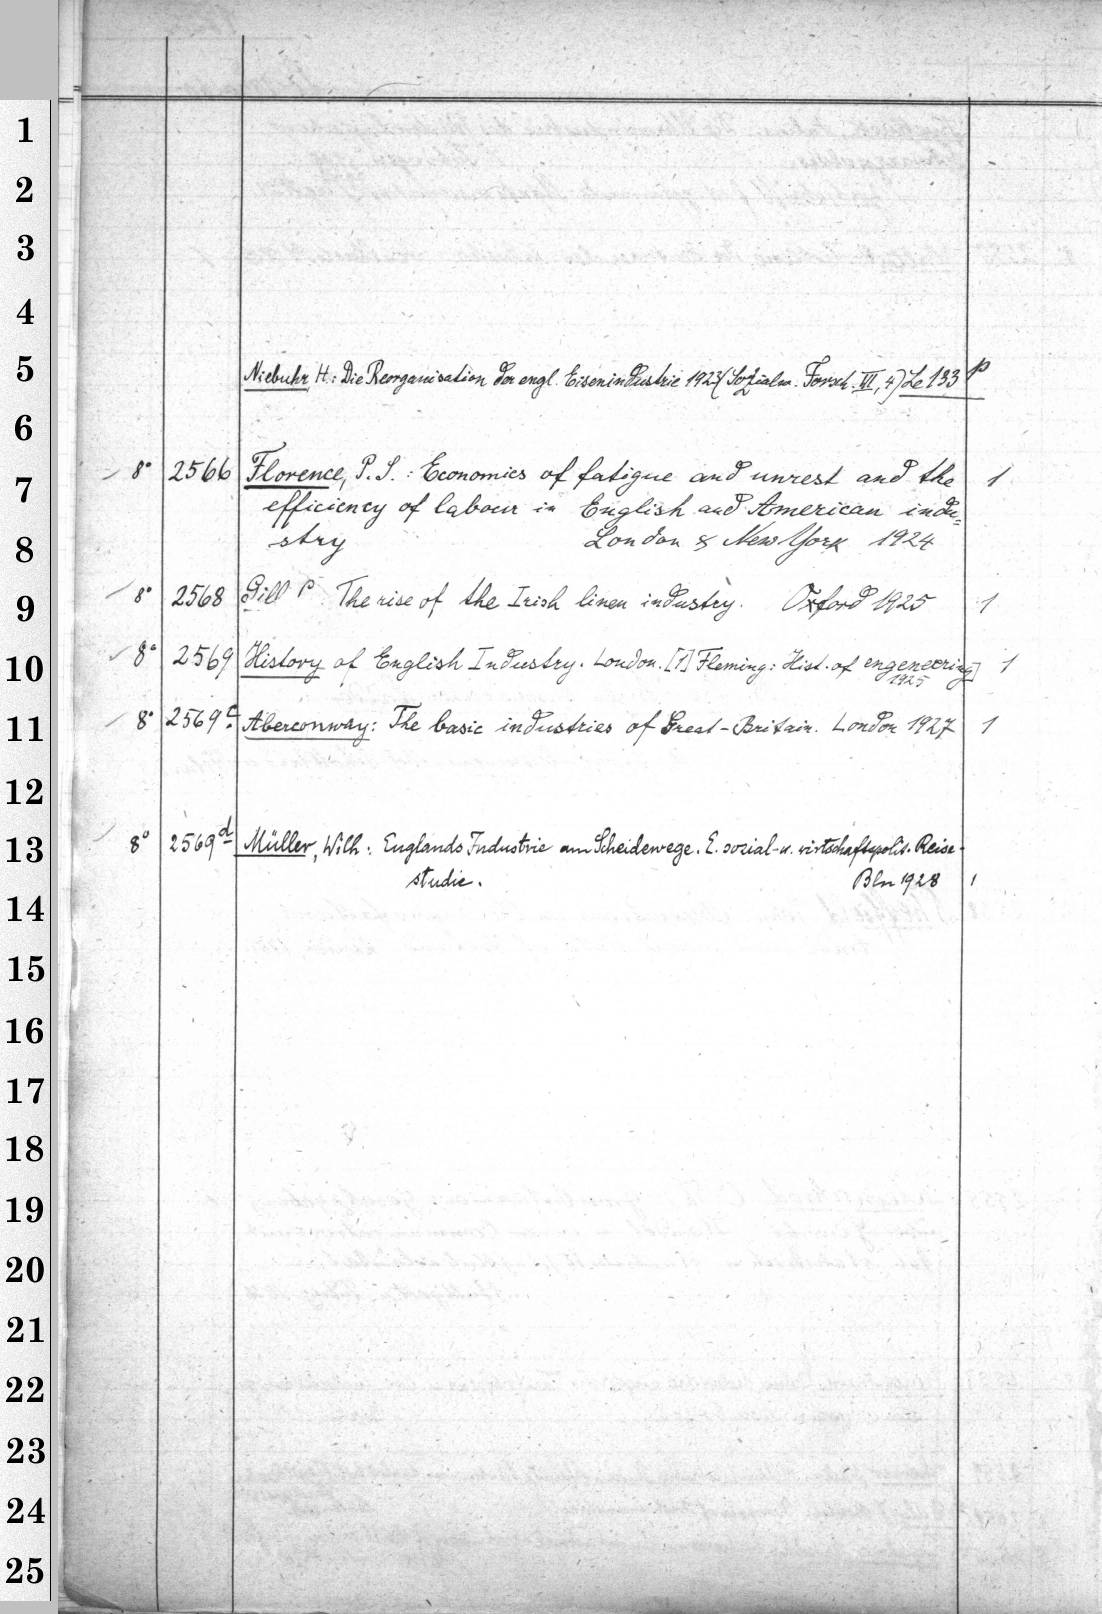 1
2
3
4
5 Niebuhr H.: Die Reorganisation der engl. Eisenindustrie 1923 (Sozialw. Forsch. III, 4) Le 133 p
6
8° 2566 Florence, P. S.: Economics of fatigue and unrest and the 1
7 efficiency of labour in English and American indu=
8 stry London & New York 1924
9 8° 2568 Gill P. The rise of the Irish linen industry. Oxford 1925 1
10 8° 2569 History of English Industry. London. [1] Fleming: Hist. of engeneering] 1
1925
11 8° 2569 c Aberconway: The basic industries of Great-Britain. London 1927 1
12
13 8° 2569 d Müller, Wilh.: Englands Industrie am Scheidewege. E. sozial- u. wirtschaftspolit. Reise-
studie. Bln 1928 1
14
15
16
17
18
19
20
21
22
23
24
25